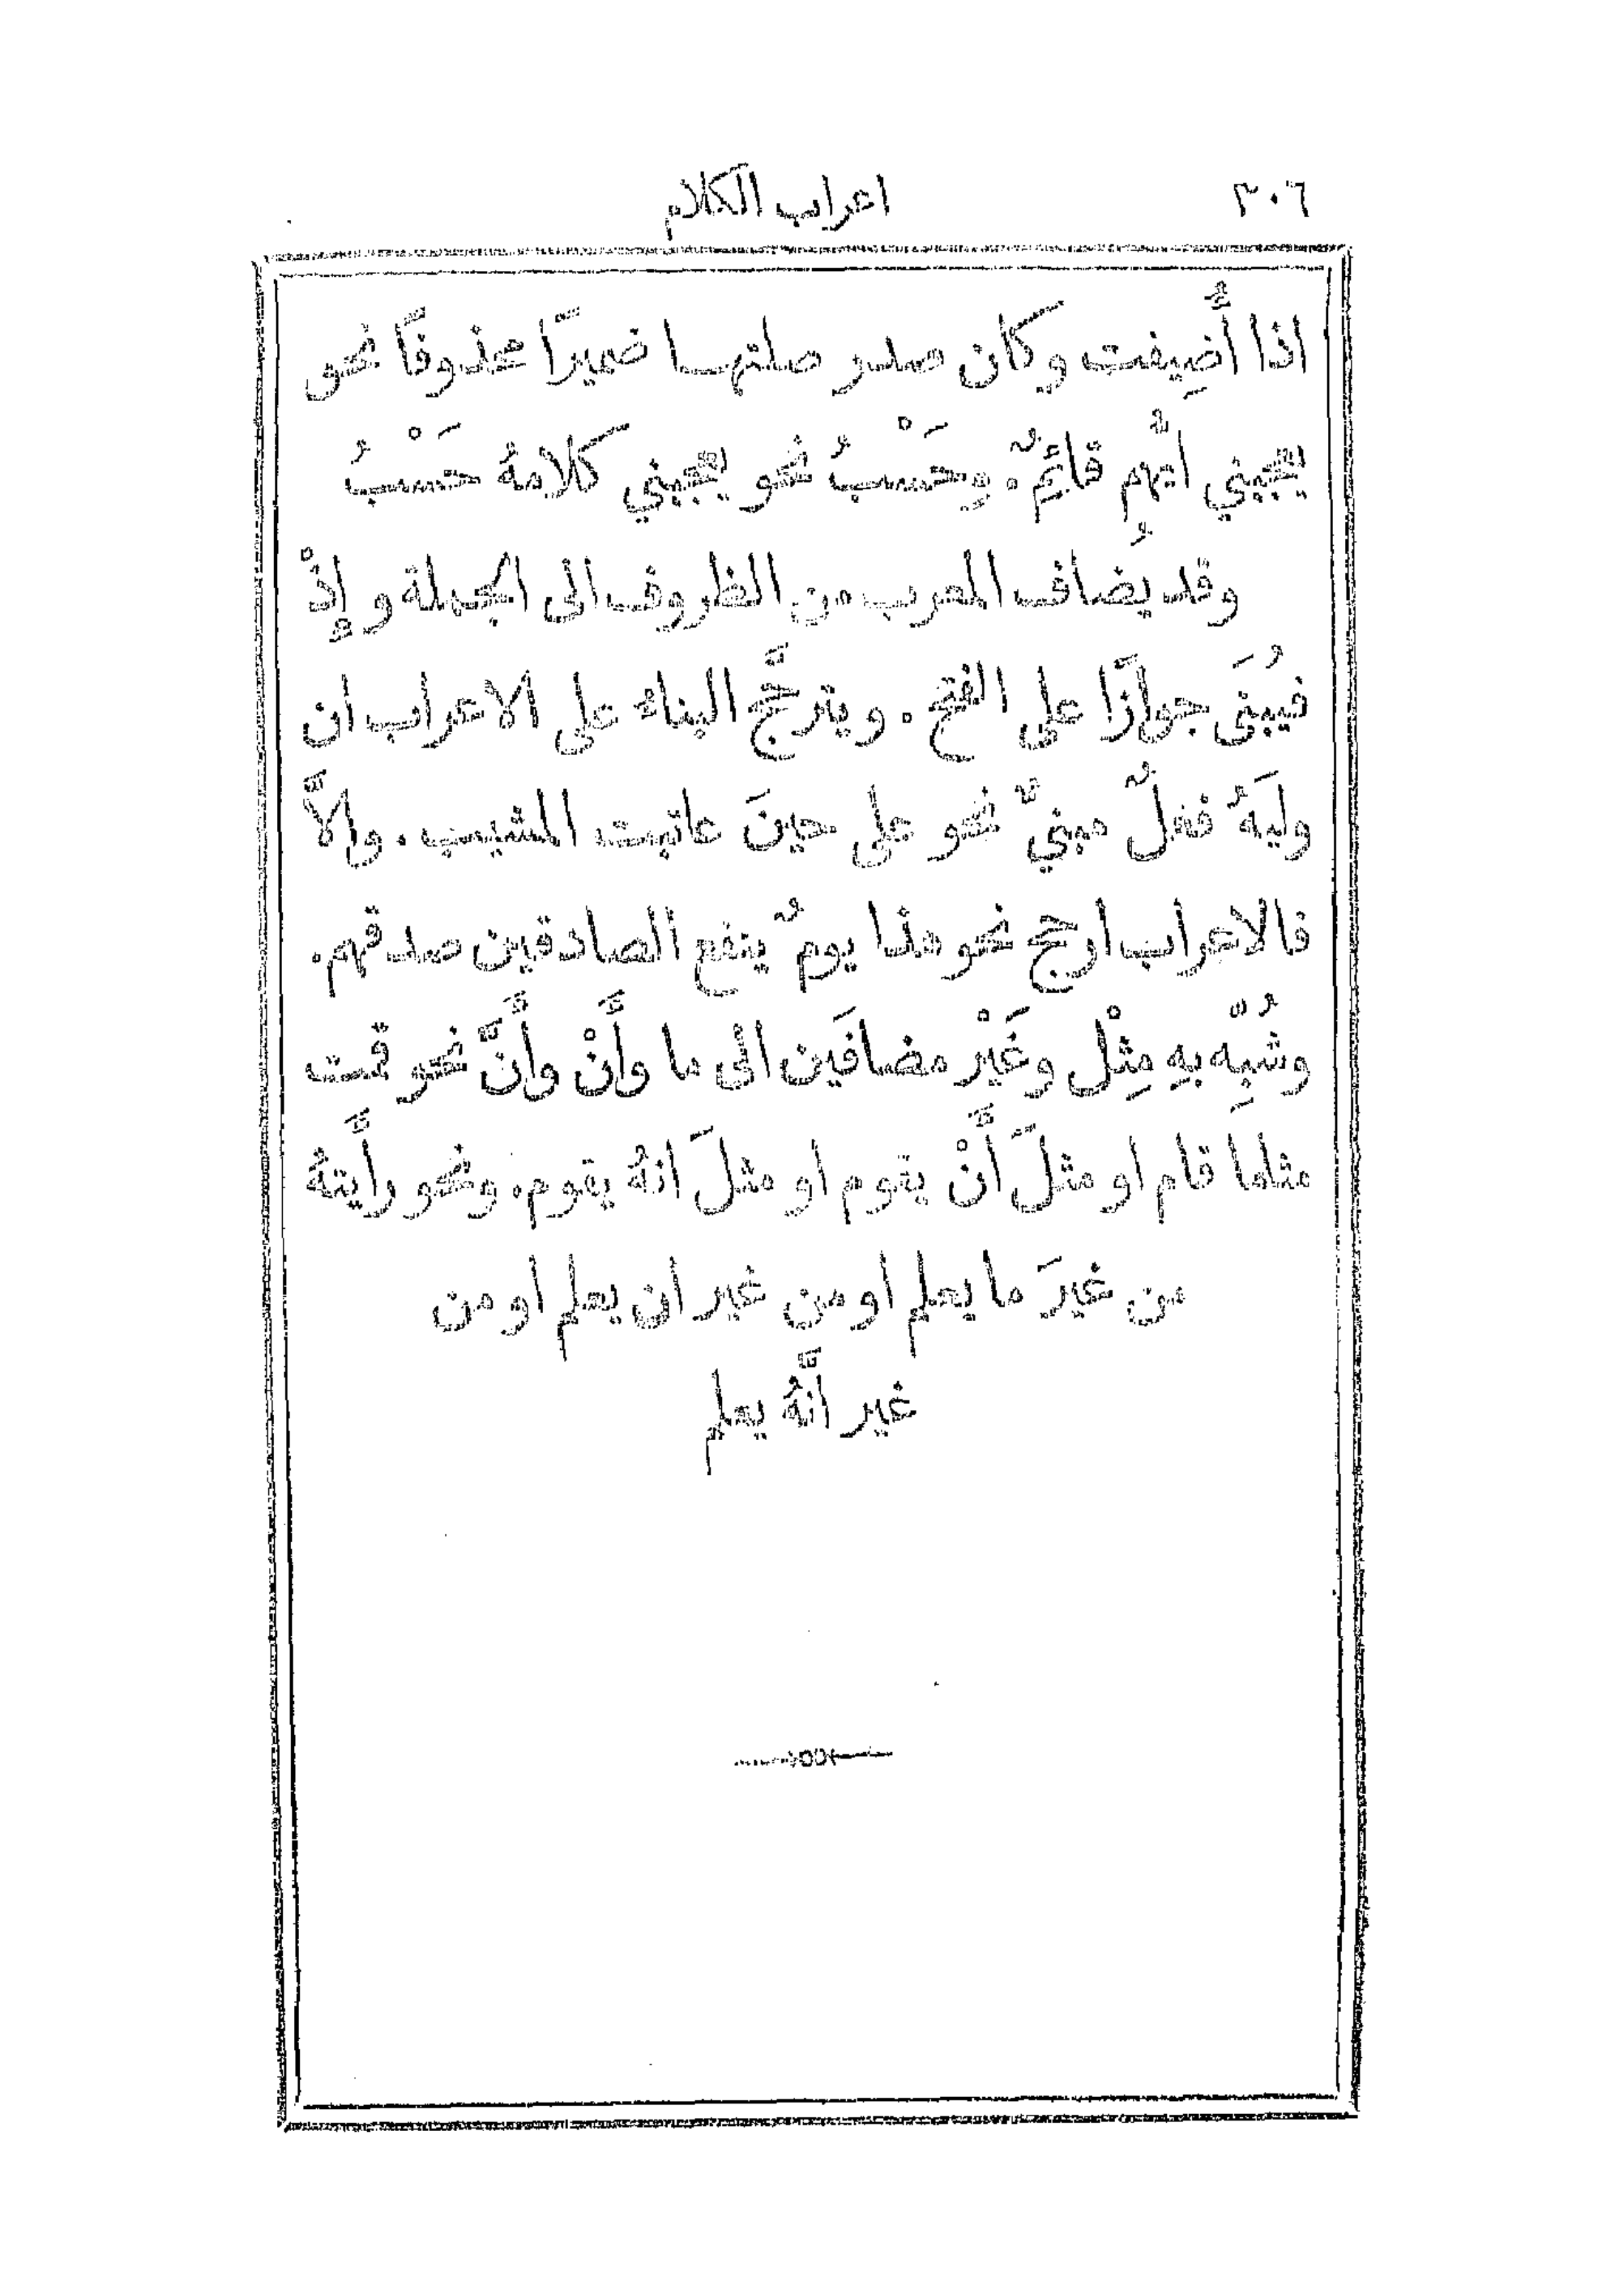 ٣٠٦ اعراب الكلام
اذا أُضِيفت وكان صدر صلتهـا ضميرًا محذوفًا نحو
يعجبني ايُّهم قائمٌ. وحَسْبُ نحو يعجبني كلامهُ حَسْبُ
وقد يُضاف المعرب من الظروف الى الجملة و إِذْ
فيُبنَى جوازًا على الفتح. ويترجَّح البناء على الاعراب ان
وليَهُ فعلٌ مبنيٌّ نحو على حينَ عاتبت المشيب. والَّا
فالاعراب ارجح نحو هذا يومُ ينفع الصادقين صدقهم.
وشُبِّه بهِ مِثْل وغَيْر مضافَين الى ما وأَنْ وأَنَّ نحو قمت
مثلما قام او مثلَ أَنْ يقوم او مثلَ انهُ يقوم. ونحو رأَيتهُ
من غيرَ ما يعلم او من غير ان يعلم او من
غير أَنَّهُ يعلم